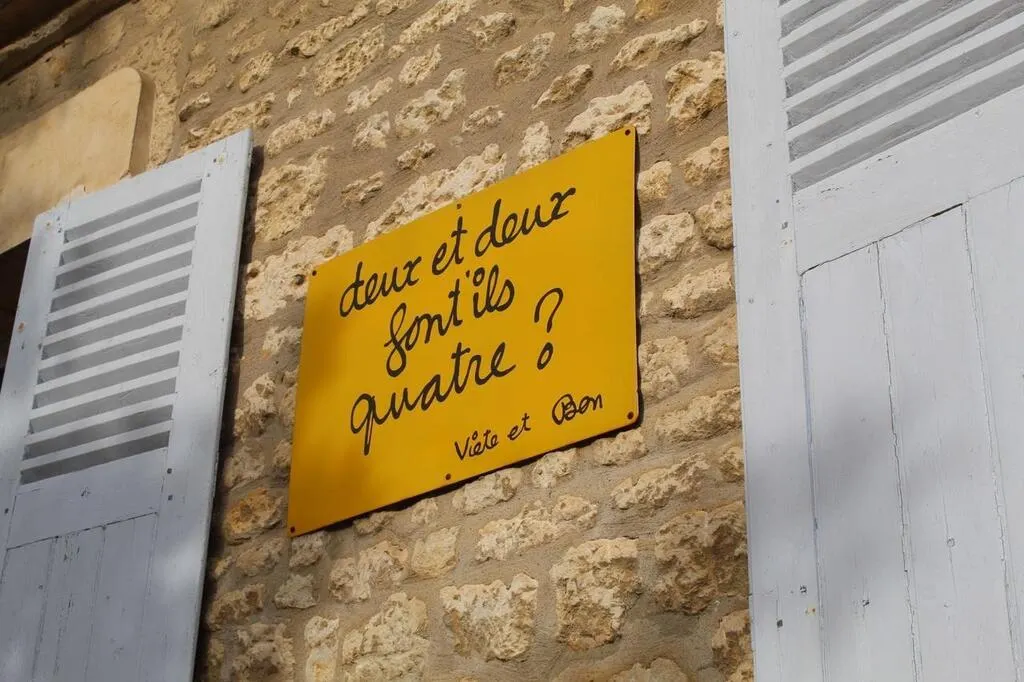 deux et deux
font'ils
quatre ?
Viète et Ben